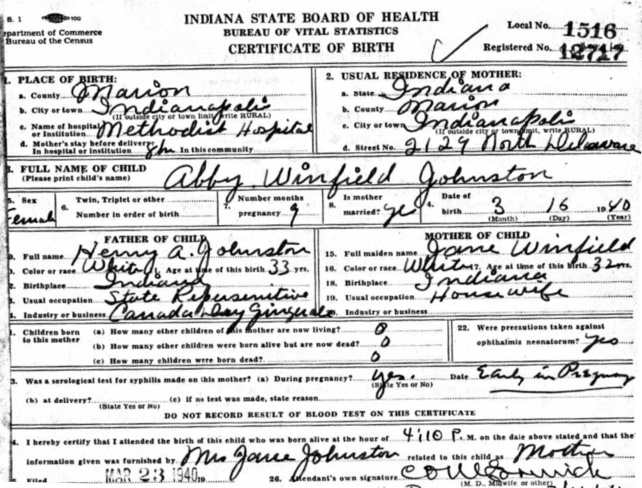 S. 1
Department of Commerce
Bureau of the Census
INDIANA STATE BOARD OF HEALTH
BUREAU OF VITAL STATISTICS
CERTIFICATE OF BIRTH
Local No. 1516
Registered No. 12717
1. PLACE OF BIRTH:
a. County Marion
b. City or town Indianapolis
(If outside city or town limit, write RURAL)
c. Name of hospital or Institution Methodist Hospital
d. Mother's stay before delivery:
In hospital or institution In this community
2. USUAL RESIDENCE OF MOTHER:
a. State Indiana
b. County Marion
c. City or town Indianapolis
(If outside city or town limit, write RURAL)
d. Street No. 2129 North Delaware
3. FULL NAME OF CHILD Abby Winfield Johnston
(Please print child's name)
5. Sex Female
6. Twin, Triplet or other
Number in order of birth
7. Number months pregnancy 9
8. Is mother married? yes
4. Date of birth 3 16 1940
(Month) (Day) (Year)
FATHER OF CHILD
9. Full name Henry A. Johnston
10. Color or race White 11. Age at time of this birth 33 yrs.
12. Birthplace Indiana
13. Usual occupation State
14. Industry or business Canada Dry
MOTHER OF CHILD
15. Full maiden name Jane Winfield
16. Color or race White 17. Age at time of this birth 32 yrs.
18. Birthplace Indiana
19. Usual occupation Housewife
20. Industry or business
21. Children born to this mother
(a) How many other children of this mother are now living? 0
(b) How many other children were born alive but are now dead? 0
(c) How many children were born dead? 0
22. Were precautions taken against ophthalmia neonatorum? yes
23. Was a serological test for syphilis made on this mother? (a) During pregnancy? yes. Date Early in Pregnancy
(State Yes or No)
(b) at delivery? (c) if no test was made, state reason
(State Yes or No)
DO NOT RECORD RESULT OF BLOOD TEST ON THIS CERTIFICATE
24. I hereby certify that I attended the birth of this child who was born alive at the hour of 4:10 P. M. on the date above stated and that the
information given was furnished by Mrs Jane Johnston related to this child as Mother
25. Filed MAR 23 1940 19 26. Attendant's own signature
(M. D., Midwife or other)